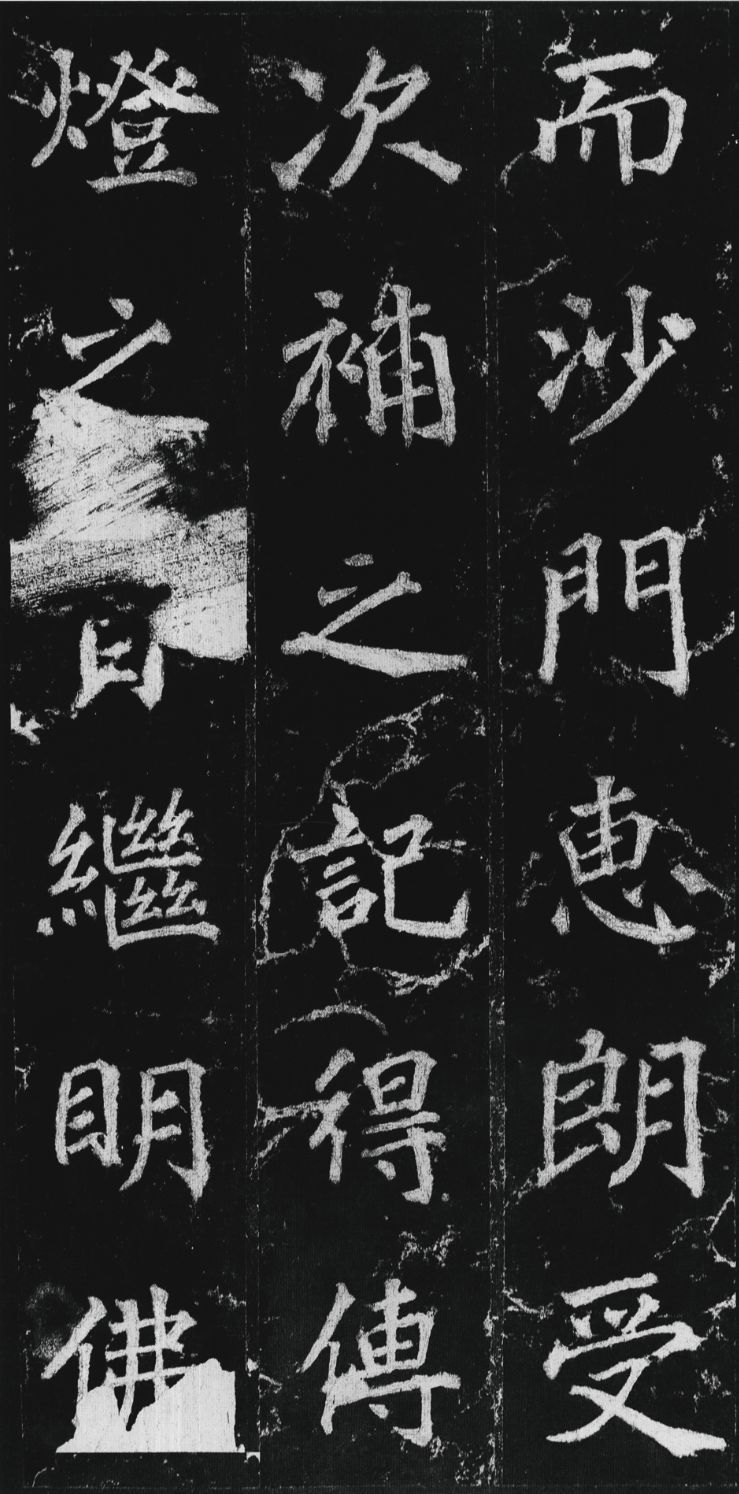 而沙門惠朗受
次補之記得傳
燈之
日繼明佛